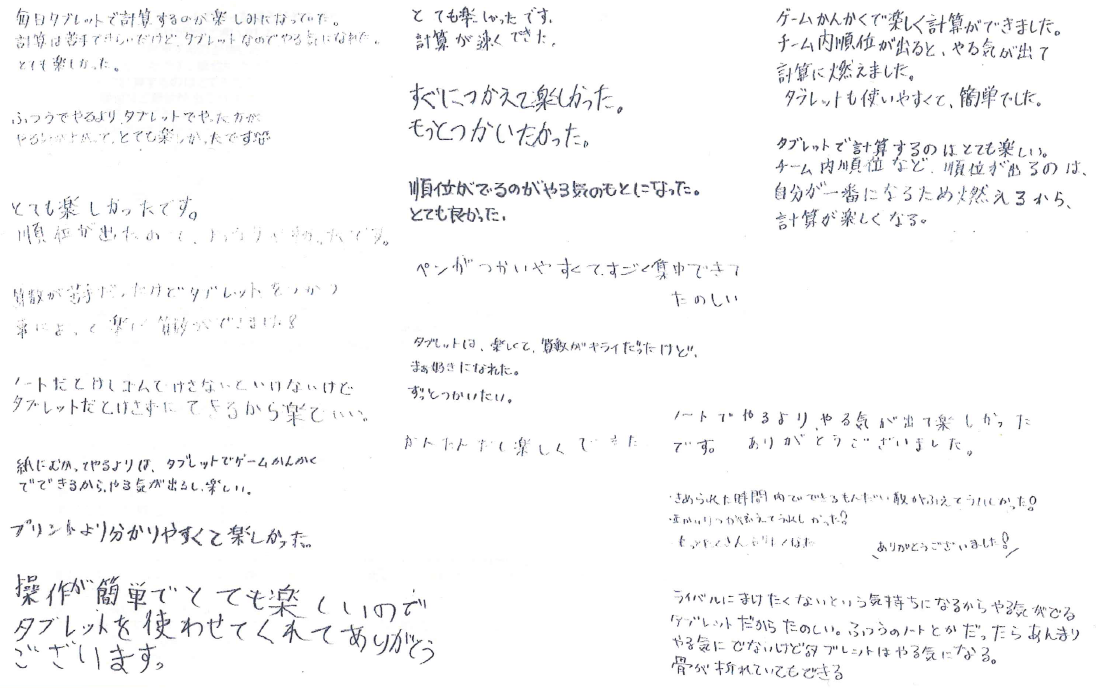 毎日タブレットで計算するのが楽しみになっていた。
計算は苦手できらいだけど、タブレットなのでやる気になれた。
とても楽しかった。
ふつうでやるより、タブレットでやった方が
とても楽しかったです
とても楽しかったです。
順位が出たので、
算数が苦手だったけどタブレットをつかう
事によって楽に算数ができました
ノートだとけしゴムでけさないといけないけど
タブレットだとけさずにできるから楽でいい。
紙にむかってやるよりは、タブレットでゲームかんかく
でできるから、やる気が出るし、楽しい。
プリントより分かりやすくて楽しかった。
操作が簡単でとても楽しいので
タブレットを使わせてくれてありがとう
ございます。
とても楽しかったです。
計算が速くできた。
すぐにつかえて楽しかった。
もっとつかいたかった。
順位がでるのがやる気のもとになった。
とても良かった。
ペンがつかいやすくて、すごく集中できて
たのしい
タブレットは、楽しくて、算数がキライだったけど、
まあ好きになれた。
ずっとつかいたい。
かんたんだし楽しくできた
ゲームかんかくで楽しく計算ができました。
チーム内順位が出ると、やる気が出て
計算に燃えました。
タブレットも使いやすくて、簡単でした。
タブレットで計算するのはとても楽しい。
チーム内順位など、順位が出るのは、
自分が一番になるため燃えるから、
計算が楽しくなる。
ノートでやるより、やる気が出て楽しかった
です。 ありがとうございました。
きめられた時間内でできるもんだい数がふえてうれしかった!
ふえてうれしかった!
ありがとうございました!
ライバルにまけたくないという気持ちになるからやる気がでる
タブレットだからたのしい。ふつうのノートとかだったらあんまり
やる気にでないけどタブレットはやる気になる。
骨が折れていてもできる